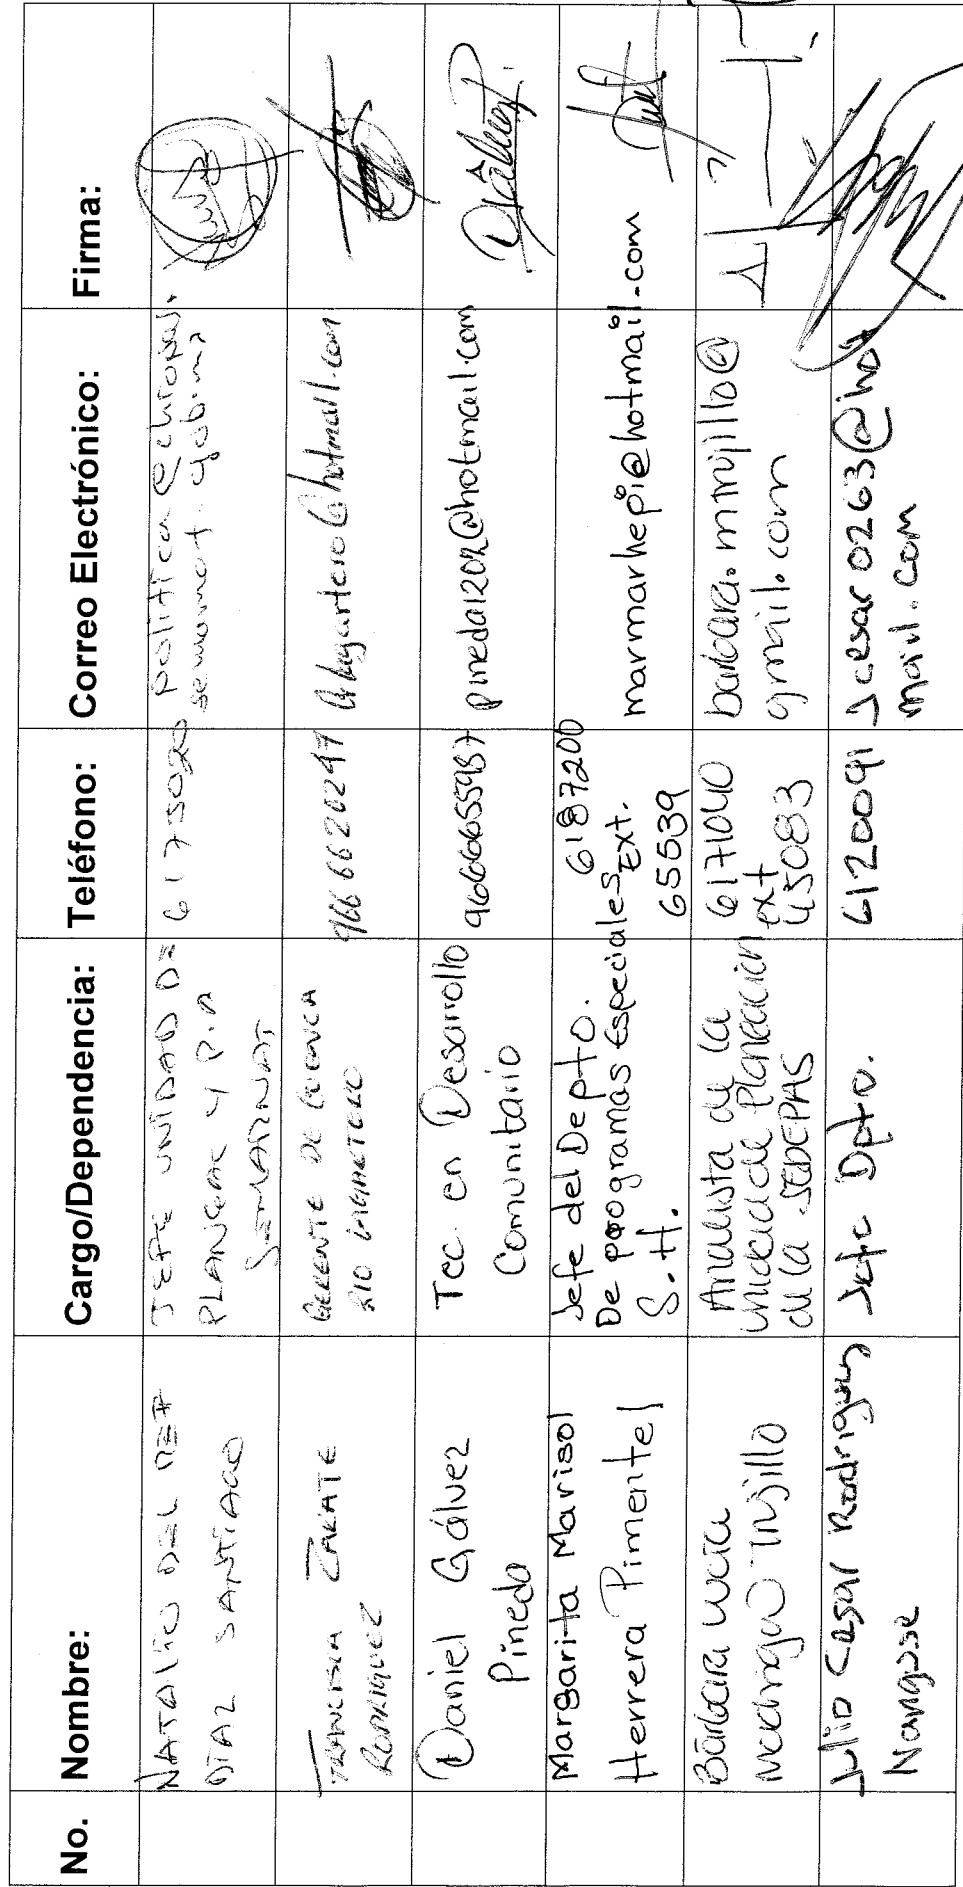 No. Nombre: Cargo/Dependencia: Teléfono: Correo Electrónico: Firma:
NATALIO DEL
DIAZ SANTIAGO
JEFE UNIDAD DE
PLANEAC Y P.P
SEMARNAT
6175020
politica@chiapas.
semarnat.gob.mx
FRANCISCA ZARATE
RODRIGUEZ
GERENTE DE CUENCA
RIO LAGARTERO
9666620247
@hotmail.com
Daniel Gálvez
Pineda
Tec. en Desarrollo
Comunitario
9666655987
pineda1202@hotmail.com
Margarita Marisol
Herrera Pimentel
Jefe del Depto.
De programas Especiales
S.H.
6187200
Ext.
65539
marmarhepi@hotmail.com
Bárbara Lucía
Trujillo
Analista de la
unidad de Planeación
de la SEDEPAS
6171040
ext
45083
barbara.mtrujillo@
gmail.com
Julio Cesar Rodriguez
Nanguse
Jefe Dpto.
6120091
Jcesar0263@hot
mail.com